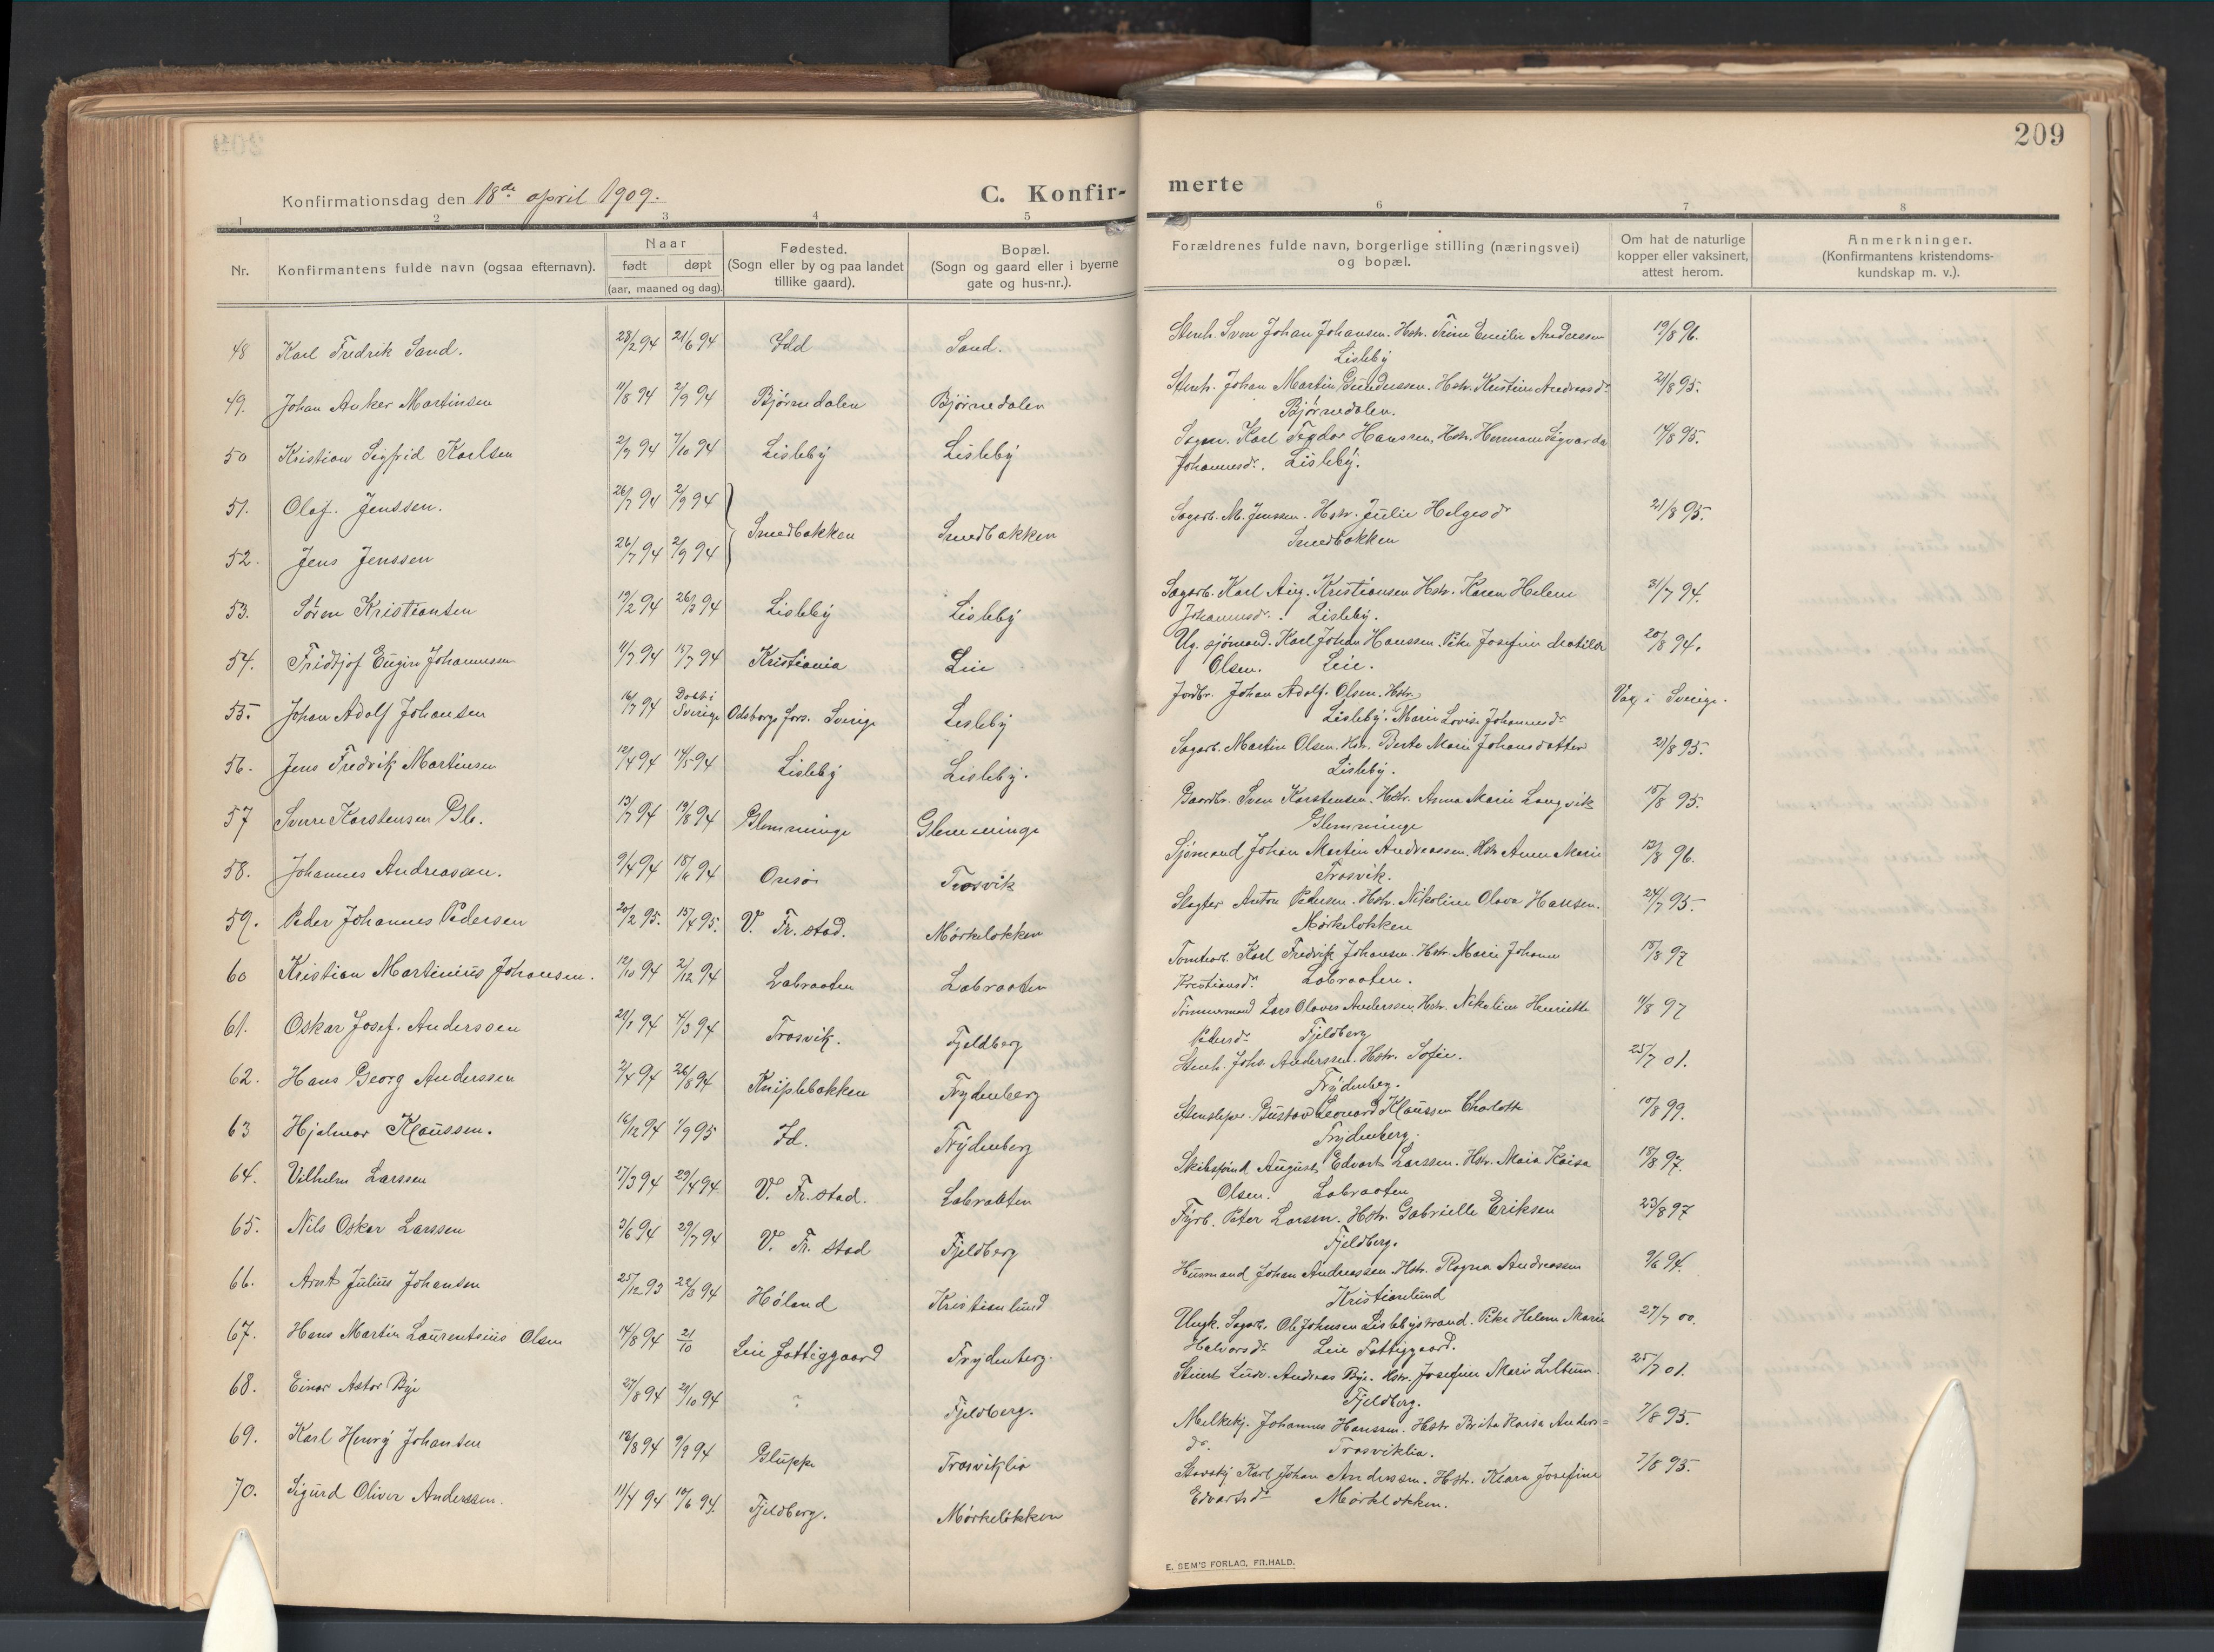 209
Konfirmationsdag den 18de april 1909.
C. Konfir-
merte
1 2 3 4 5 6 7 8
Nr.
Konfirmantens fulde navn (ogsaa efternavn).
Naar
født døpt
(aar, maaned og dag).
Fødested.
(Sogn eller by og paa landet
tillike gaard).
Bopæl.
(Sogn og gaard eller i byerne
gate og hus-nr.).
Forældrenes fulde navn, borgerlige stilling (næringsvei)
og bopæl.
Om hat de naturlige
kopper eller vaksinert,
attest herom.
Anmerkninger.
(Konfirmantens kristendoms-
kundskap m. v.).
48 Karl Fredrik Sand. 28/2 94 21/6 94 Idd Sand. Stenh. Sven Johan Johansen. Hstr. Trine Emilie Anderssen 19/8 96.
Lisleby
49. Johan Anker Martinsen 11/8 94 2/9 94 Bjørnedalen Bjørnedalen Stenh. Johan Martin Gundersen. Hstr. Kristine Andreasdr 21/8 95.
Bjørnedalen.
50 Kristian Sigfrid Karlsen 2/9 94 7/10 94 Lisleby Lisleby Karl Teodor Hanssen, Hstr. Hermane Sigvarda 14/8 95.
Johannesdr. Lisleby.
51. Olaf Jenssen. 26/7 94 2/9 94 Smedbakken Smedbakken Sagarb. M. Jenssen. Hstr. Julie Helgesdr 21/8 95.
Smedbakken
52. Jens Jenssen 26/7 94 2/9 94
53. Søren Kristiansen 19/2 94 26/3 94 Lisleby Lisleby Sagarb. Karl Aug. Kristiansen Hstr. Karen Helene 31/7 94.
Johannesdr. Lisleby.
54. Fridtjof Eugin Johannesen 11/7 94 15/7 94 Kristiania Leie Ug. sjømand. Karl Johan Hanssen. Pike Josefine Matilde 20/8 94.
Olsen. Leie.
55. Johan Adolf Johansen 16/7 94 Døbt i Sverige Odsborgs fors. Sverige Lisleby Jordbr. Johan Adolf Olsen. Hstr. Vax i Sverige.
Lisleby. Marie Lovise Johannesdr
56. Jens Fredrik Martinsen 12/4 94 14/5 94 Lisleby Lisleby. Sagarb. Martin Olsen. Hstr. Berte Marie Johansdatter 21/8 95.
Lisleby.
57 Sverre Karstensen Gl. 13/7 94 19/8 94 Glemminge Glemminge Gaardbr. Sven Karstensen. Hstr. Anna Marie Langvik 15/8 95.
Glemminge
58. Johannes Andreassen. 9/4 94 18/6 94 Onsø Trosvik Sjømand Johan Martin Andreassen. Hstr Anne Marie 12/8 96.
Trosvik.
59. Peder Johannes Pedersen 20/2 95. 15/4 95. V. Fr. stad. Mørkeløkken Slagter Anton Pedersen. Hstr. Nikoline Olava Hansen. 24/7 95.
Mørkeløkken
60 Kristian Martinius Johansen. 12/10 94 2/12 94 Labraaten Labraaten Tomtearb. Karl Fredrik Johansen. Hstr. Marie Johanne 18/8 97
Kristiansdr. Labraaten.
61. Oskar Josef Anderssen 4/3 94 Trosvik. Fjeldberg Tømmermand Lars Olaves Anderssen, Hstr. Nikoline Henriette 11/8 97
Pedersdr Fjeldberg
62. Hans Georg Anderssen 2/4 94 26/8 94 Kniplebakken Frydenberg Stenh. Johs. Anderssen. Hstr. Sofie. 25/7 01.
Frydenberg.
63 Hjalmar Klaussen. 16/12 94 1/9 95 Id. Frydenberg Gustav Leonard Klaussen Charlotte 10/8 99.
Frydenberg.
64. Vilhelm Larssen 17/3 94 29/4 94 V. Fr. stad. Labraaten August Edvart Larssen. Hstr. Maia Kaisa 18/8 97.
Olsen. Labraaten
65. Nils Oskar Larssen 3/6 94 29/7 94 V. Fr. stad Fjeldberg Fyrb. Peter Larsen. Hstr. Gabrielle Eriksen 23/8 97
Fjeldberg.
66. Arnt Julius Johansen 25/12 93 22/3 94 Høland Kristianlund Husmand Johan Andreassen. Hstr. Ragna Andreassen 9/6 94.
Kristianlund
67. Hans Martin Laurentsius Olsen 14/8 94 21/10 Leie fattiggaard Frydenberg. Ungk. Sagarb. Ole Johnsen Lislebystrand. Pike Helene Marie 27/7 00.
Halvorsdr Leie Fattiggaard.
68. Einar Astor Bye 27/8 94 21/10 94 ? Fjeldberg. Ludv. Andreas Bye. Hstr. Josefine Marie 25/7 01.
Fjeldberg.
69. Karl Henry Johansen 12/8 94 9/9 94 Gluppe Trosviklia Melkekj. Johannes Hanssen. Hstr Brita Kaisa Anders=
dr. Trosviklia. 7/8 95.
70. Sigurd Oliver Anderssen. 11/4 94 10/6 94. Fjeldberg. Mørkeløkken Karl Johan Anderssen. Hstr. Klara Josefine 7/8 95.
Edvartsdr Mørkeløkken.
E. SEM'S FORLAG, FR.HALD.